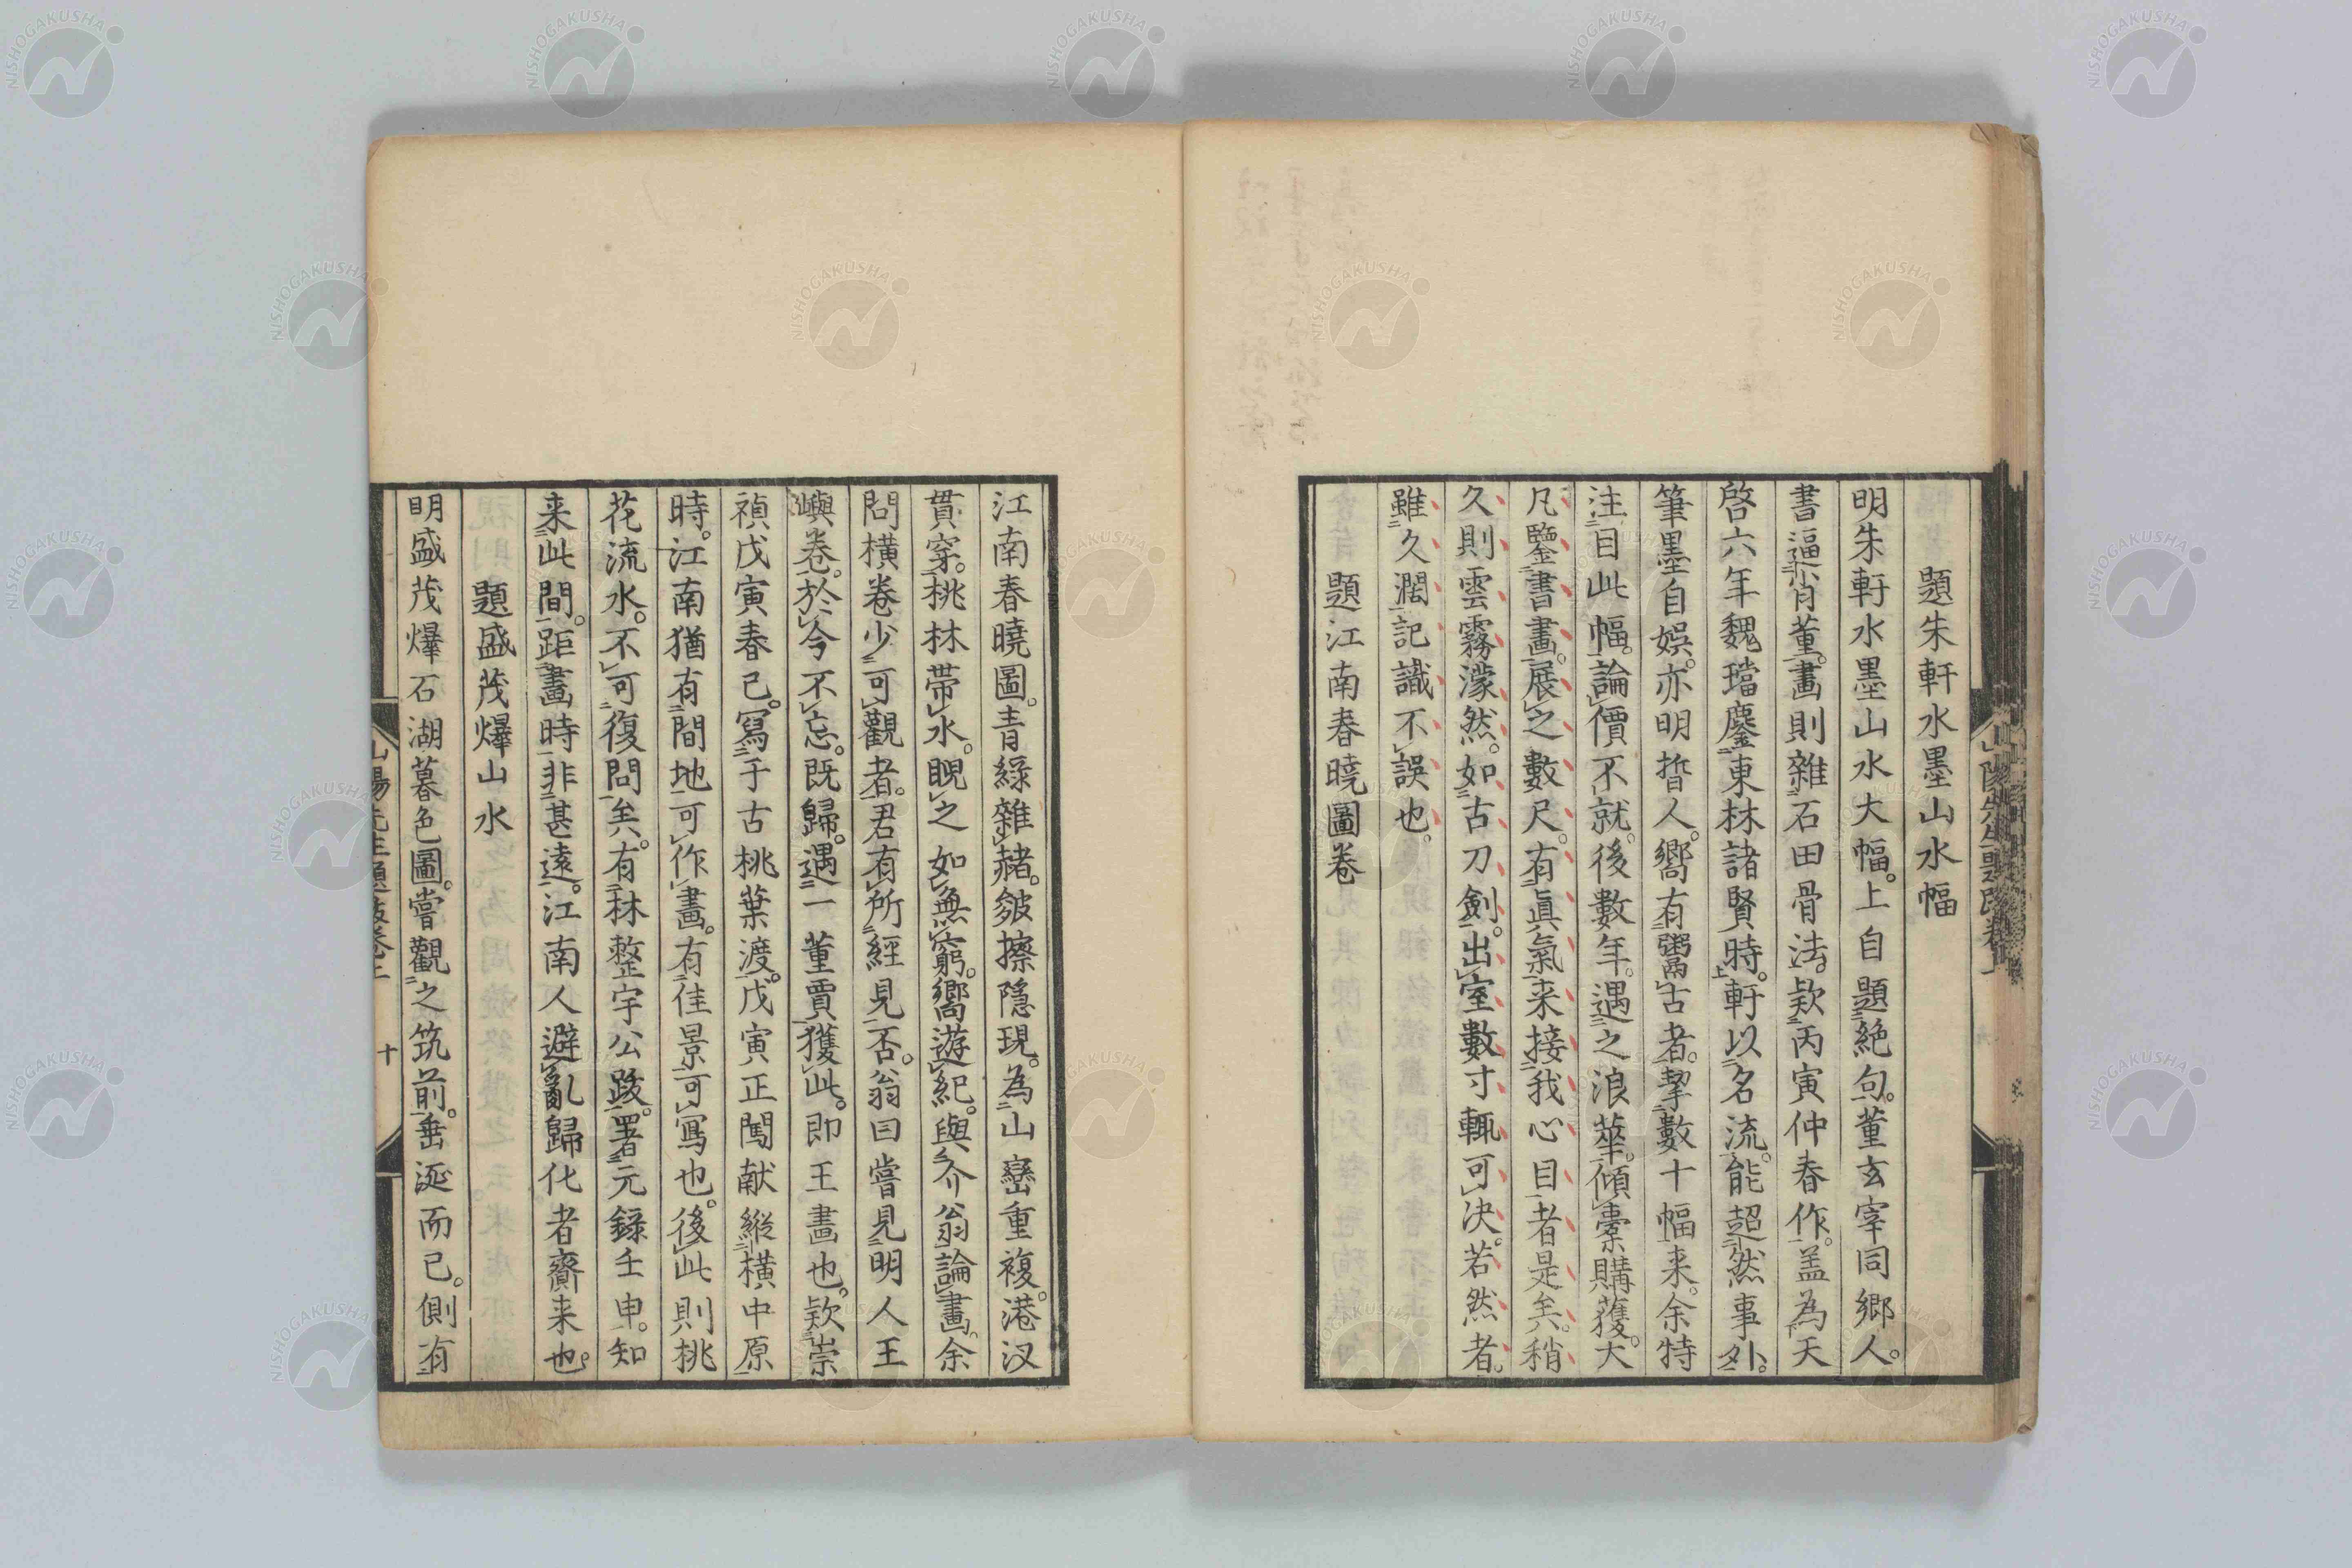 題朱軒水墨山水幅
明朱軒水墨山水大幅。上自題絶句。董玄宰同郷人。
書逼肖董。畫則雜石田骨法。款丙寅仲春作。盖為天
啓六年魏璫鏖東林諸賢時。軒以名流。能超然事外。
筆墨自娯。亦明哲人。嚮有鬻古者。挈數十幅来。余特
注目此幅。論價不就。後數年。遇之浪華。傾嚢購獲。大
凡鑒書畫。展之數尺。有眞氣来接我心目者是矣。稍
久則雲霧濛然。如古刀劍。出室數寸輙可决。若然者。
雖久濶記識不誤也。
題江南春曉圖卷
江南春曉圖。青緑雜赭。皴擦隠現。為山巒重複。港汊
貫穿。桃林帶水。睨之如無窮。嚮遊紀。與介翁論畫。余
問横卷少可觀者。君有所經見否。翁曰嘗見明人王
嶼卷。於今不忘。既歸。遇一董賈獲此。即王畫也。款崇
禎戊寅春已。寫于古桃葉渡。戊寅正闖献縦横中原
時。江南猶有間地可作畫。有佳景可寫也。後此則桃
花流水。不可復問矣。有林整宇公跋。署元録壬申。知
来此間。距畫時非甚遠。江南人避亂歸化者齎来也。
題盛茂燁山水
明盛茂燁石湖暮色圖。嘗觀之筑前。垂涎而已。側有
山陽先生題跋卷上
十